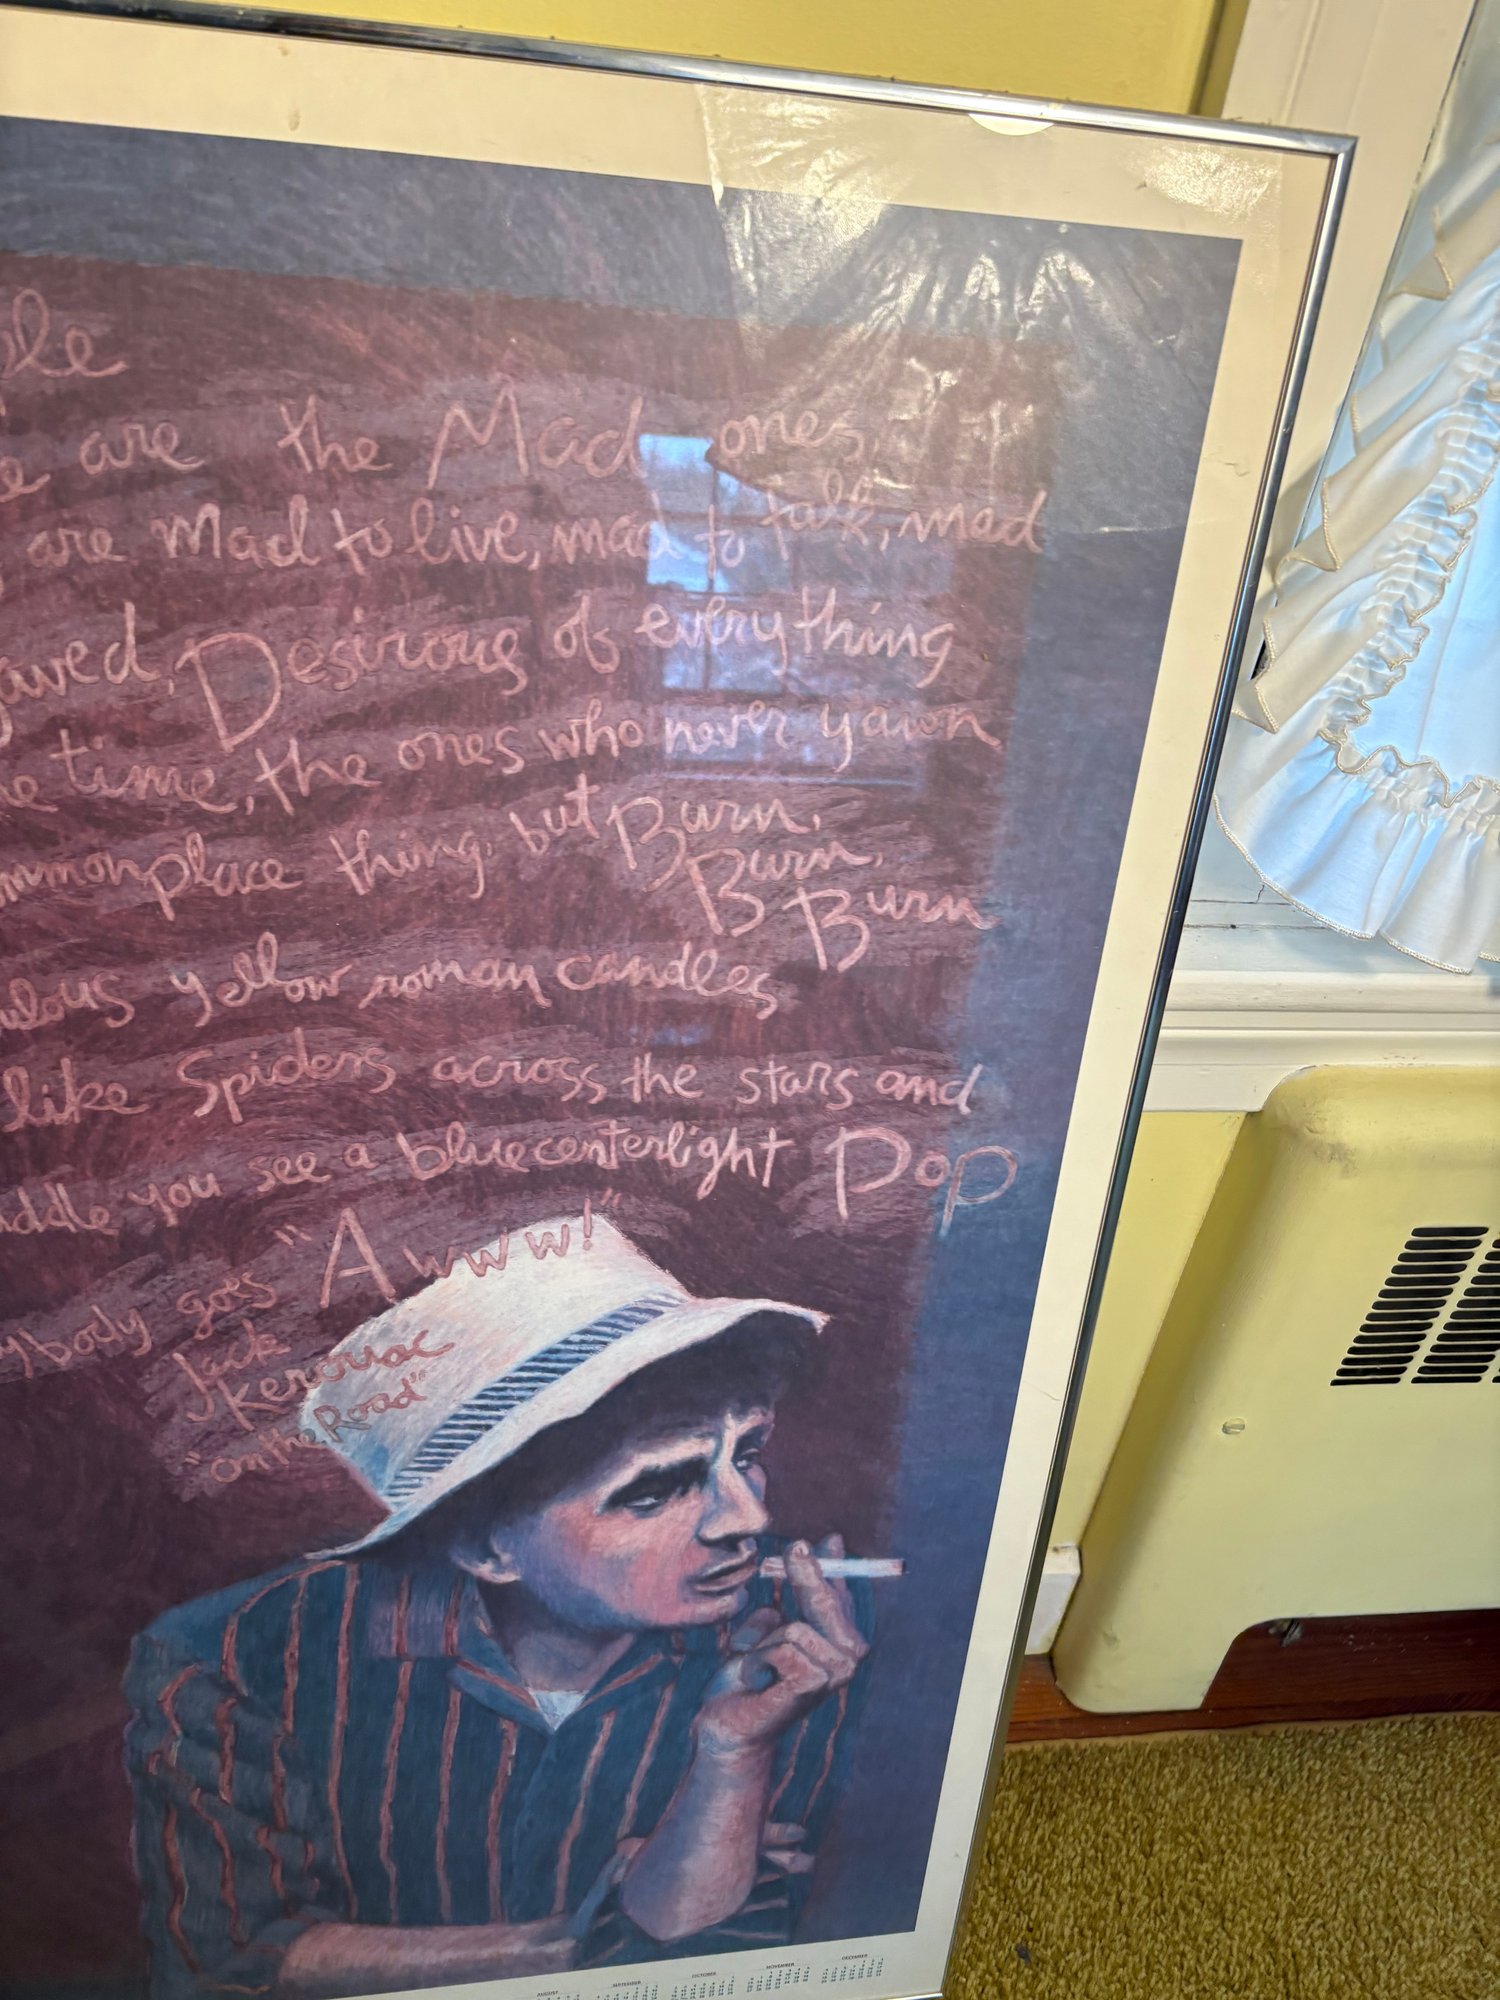 are the Mad ones,
are Mad to live, mad to talk, mad
Desirous of everything
time, the ones who never yawn
thing, but Burn,
Burn,
Burn
yellow roman candles
like Spiders across the stars and
you see a bluecenterlight Pop
goes "Awww!"
Jack
Kerouac
"on the Road"
AUGUST SEPTEMBER OCTOBER NOVEMBER DECEMBER